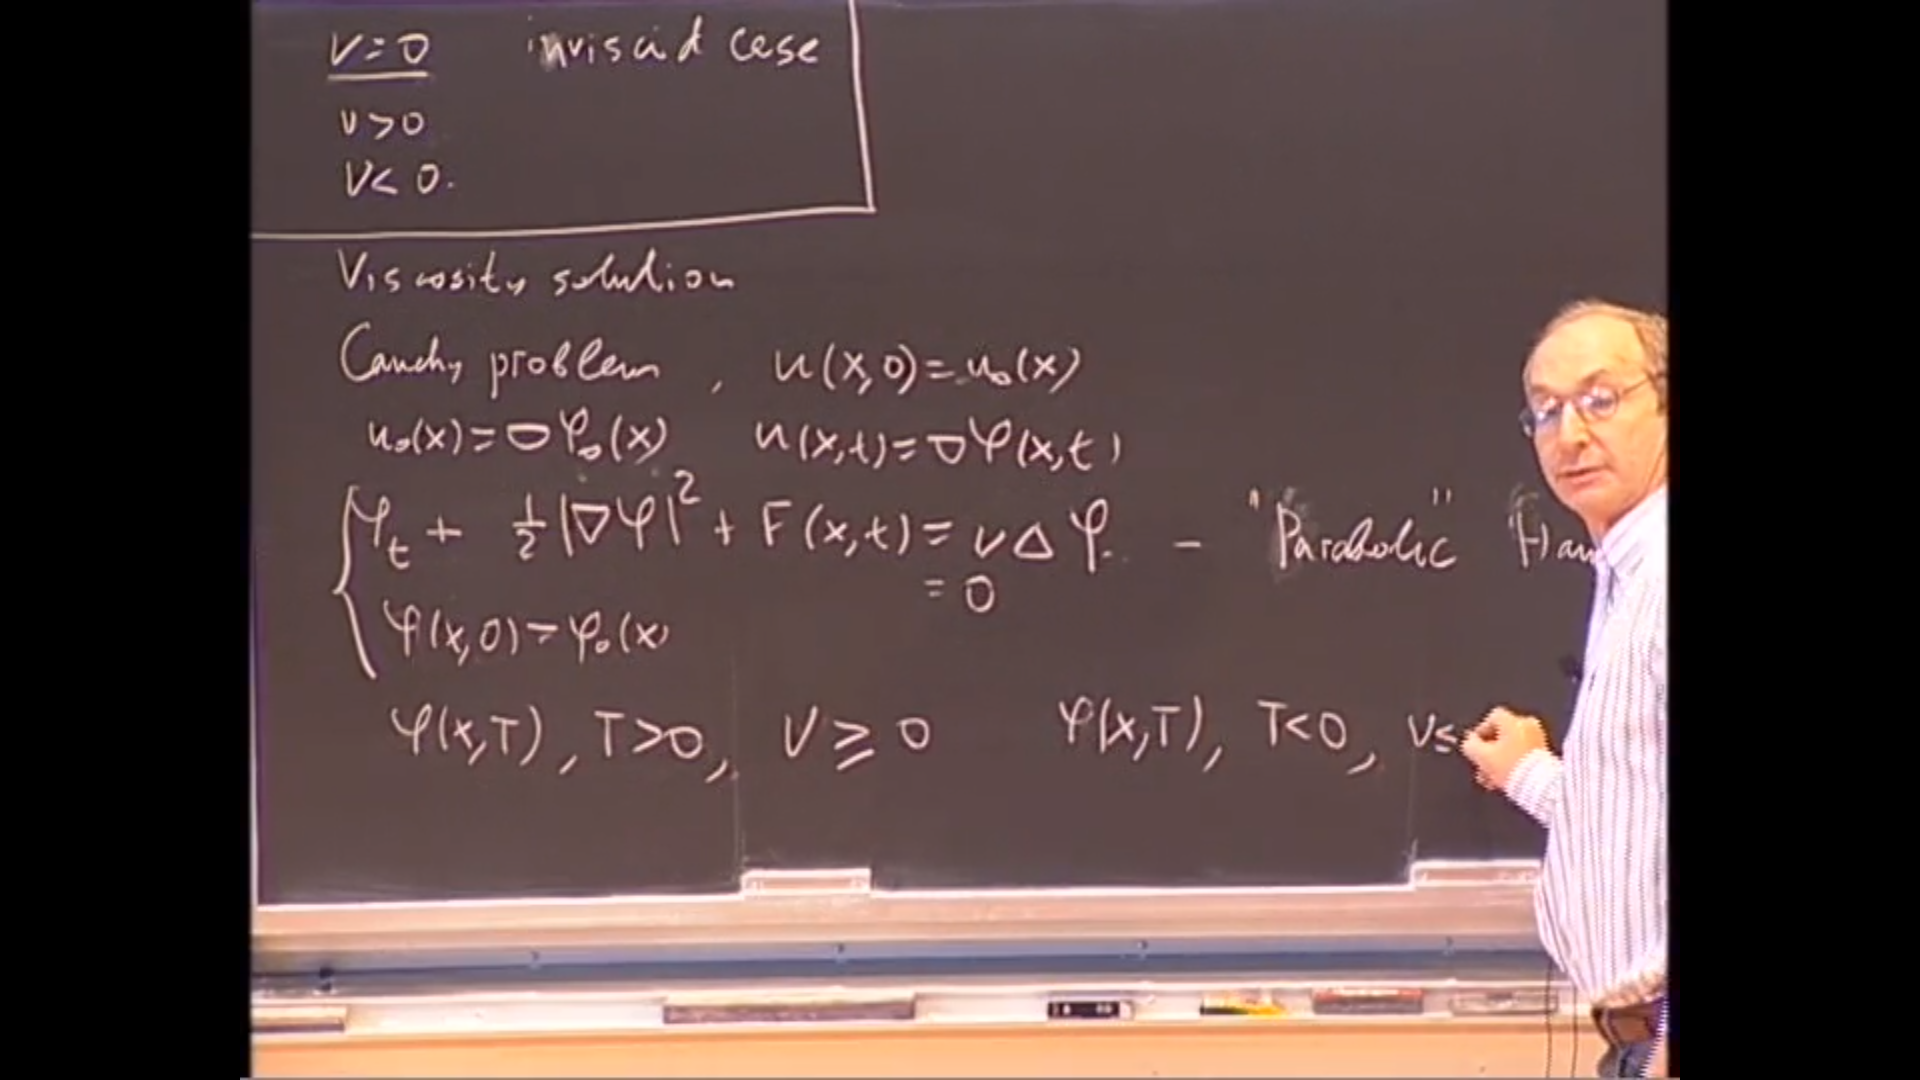 ν=0 inviscid case
ν>0
ν<0.
Viscosity solution
Cauchy problem, u(x,0)=u₀(x)
u₀(x)=∇φ₀(x) u(x,t)=∇φ(x,t)
φ_t + ½|∇φ|² + F(x,t) = νΔφ. - "Parabolic"
= 0
φ(x,0)=φ₀(x)
φ(x,T), T>0, ν ≥ 0 φ(x,T), T<0, ν≤